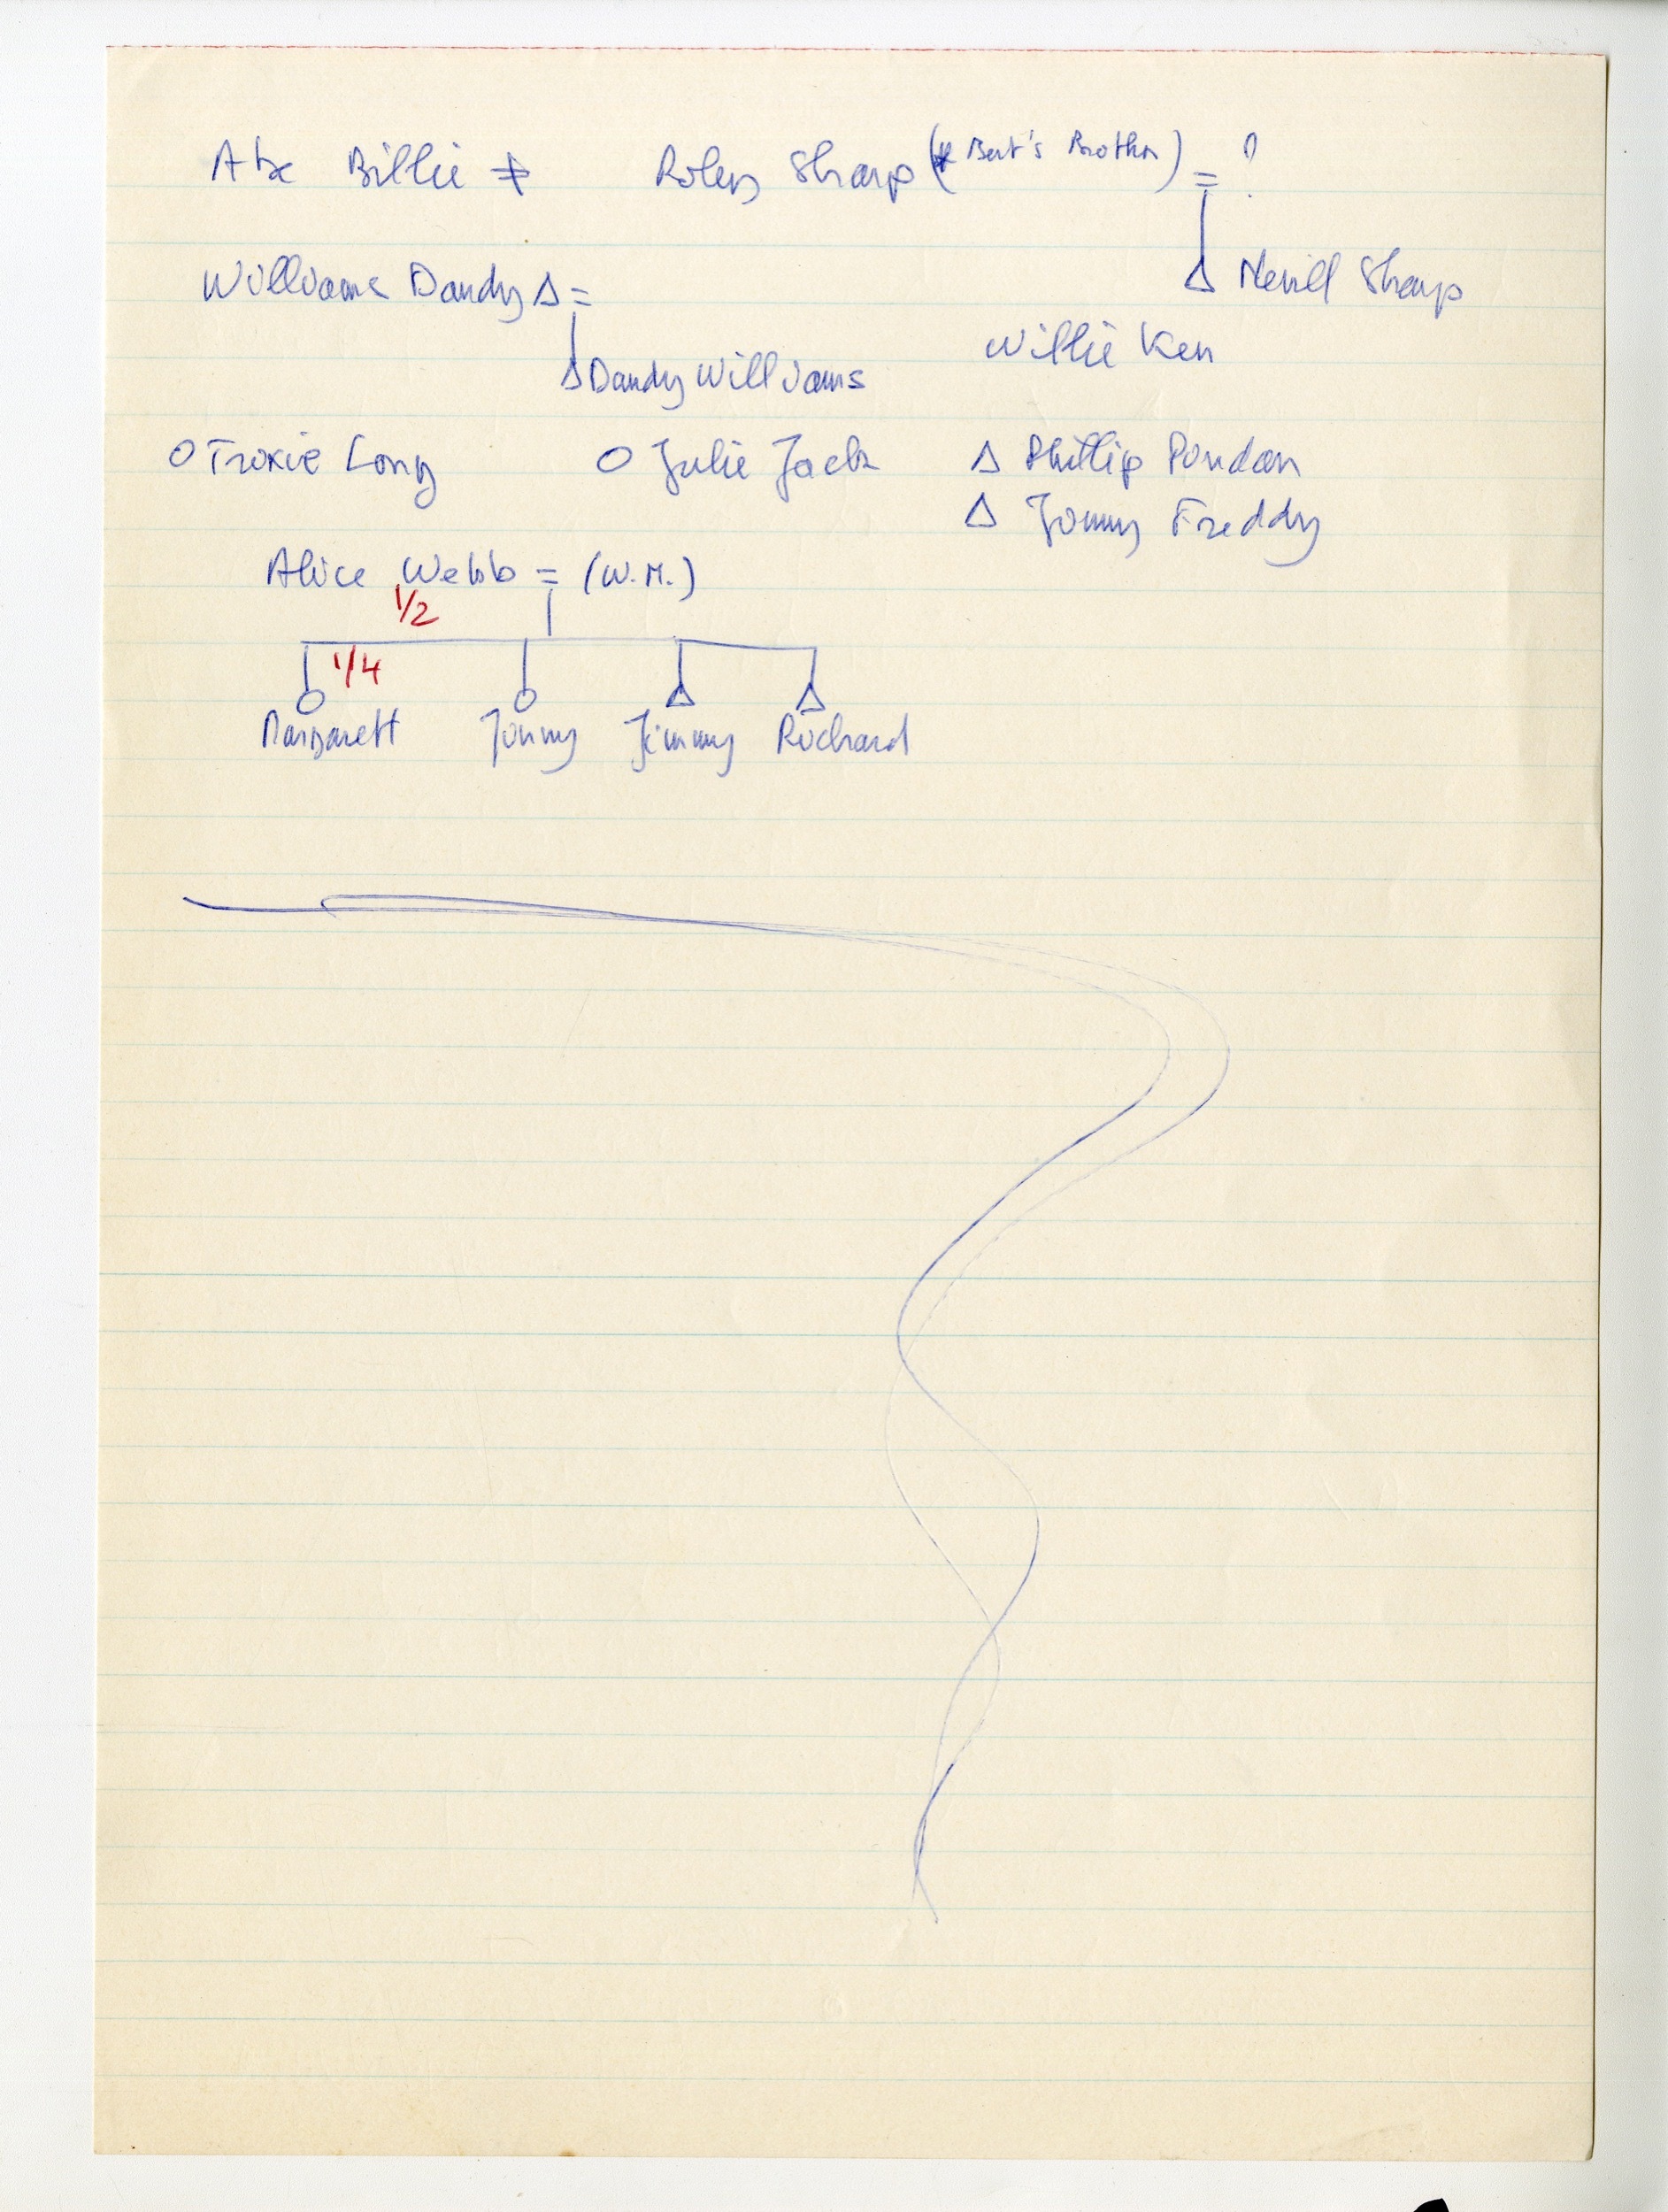 Abc Billie ≠ Roley Sharp (* Bert's Brother) = ?
Williams Dandy Δ =
Δ Nevill Sharp
Willie Ken
Δ Dandy Williams
O Trixie Long O Julie Jack Δ Phillip
Δ Jonny Freddy
Alice Webb = (W.M.)
1/2
1/4
Margarett Jonny Jimmy Richard